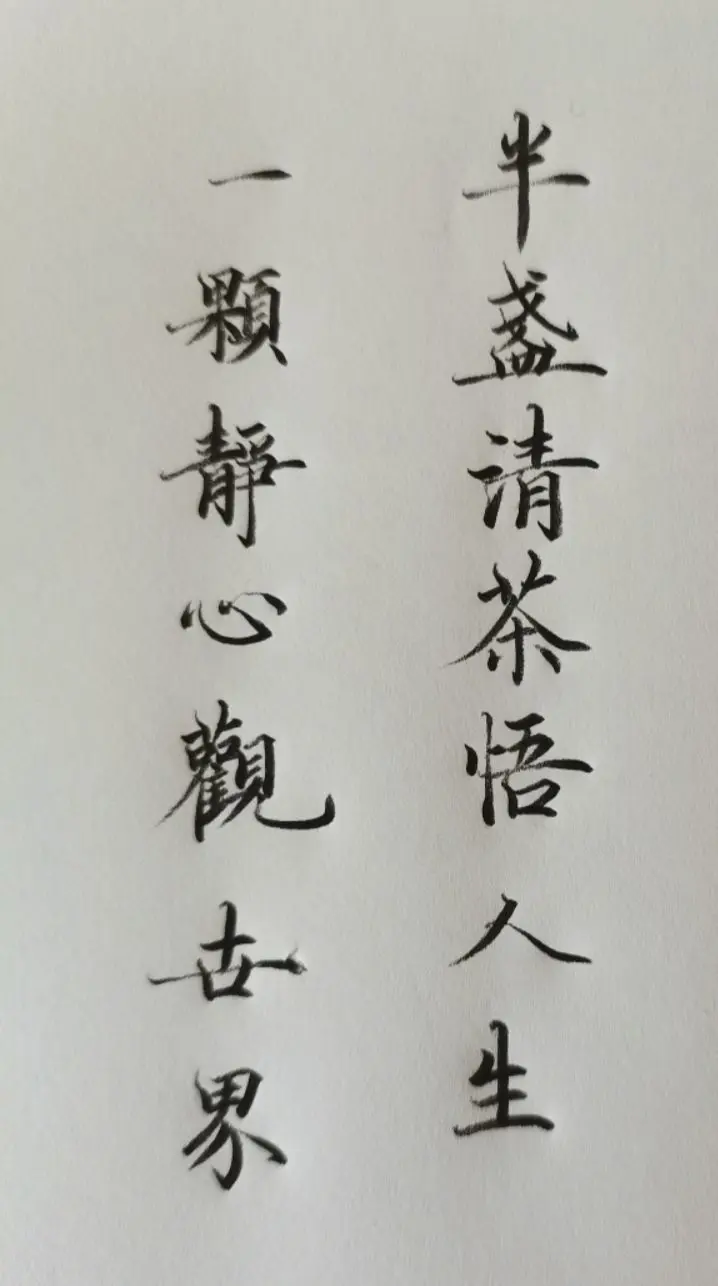 半盏清茶悟人生
一顆靜心觀世界